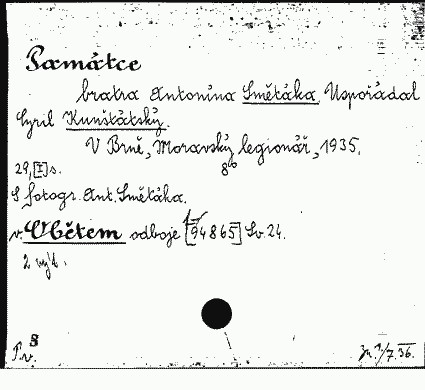 Památce
bratra Antonína Smětáka. Uspořádal
Cyril Kunštátský.
V Brně, Moravský legionář, 1935.
29, [I] s. 8°
S fotogr. Ant. Smětáka.
v. Obětem odboje [94865] Sv. 24.
2 výt.
8
P.v.
7. 36.